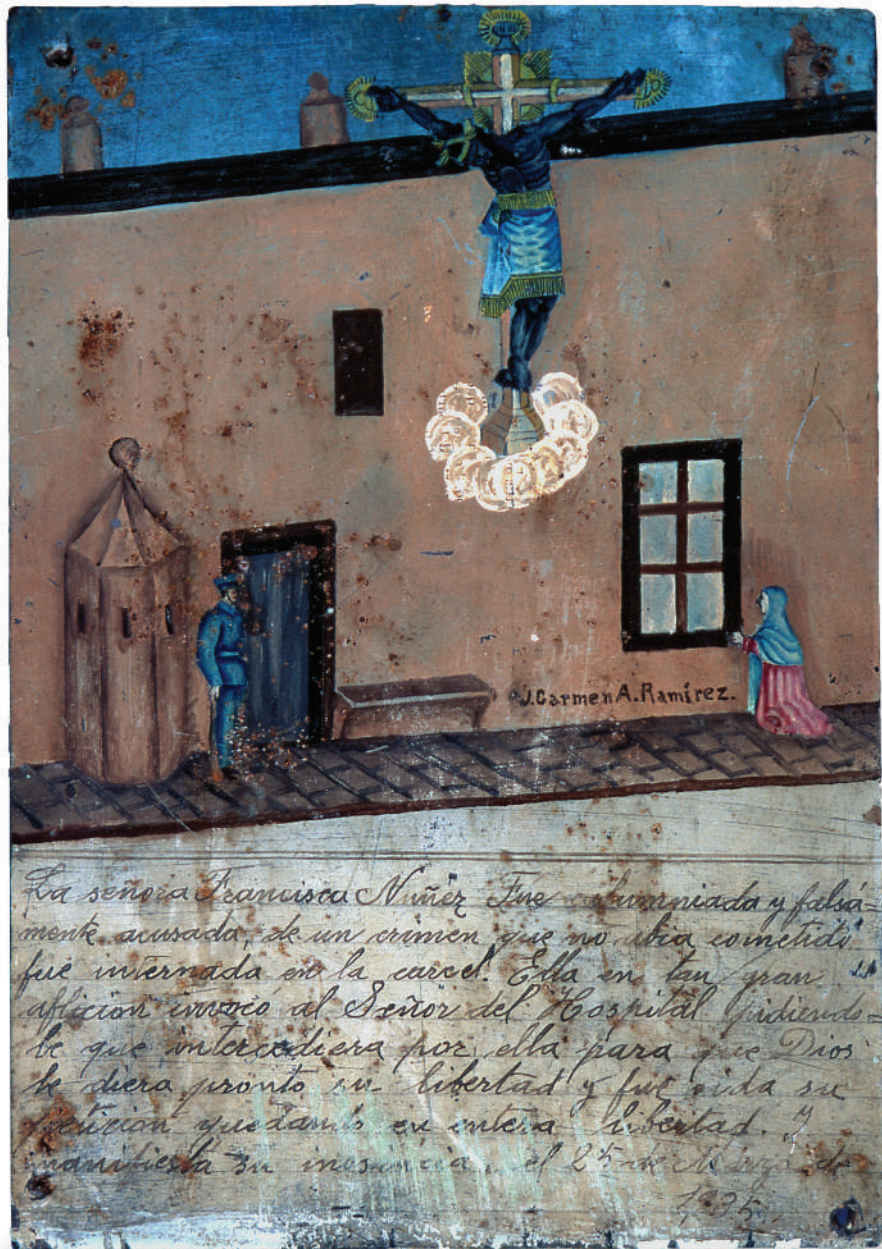 J. Carmen A. Ramírez.
La señora Francisca Nuñez Fue calumniada y falsa-
mente acusada, de un crimen que no abia cometido
fué internada en la carcel. Ella en tan gran
aflicion invocó al Señor del Hospital pidiendo-
le que intercediera por ella para que Dios
le diera pronto su libertad y fué oida su
peticion quedando en entera libertad. Y
manifiesta su inosincia. el 25 de Marzo de